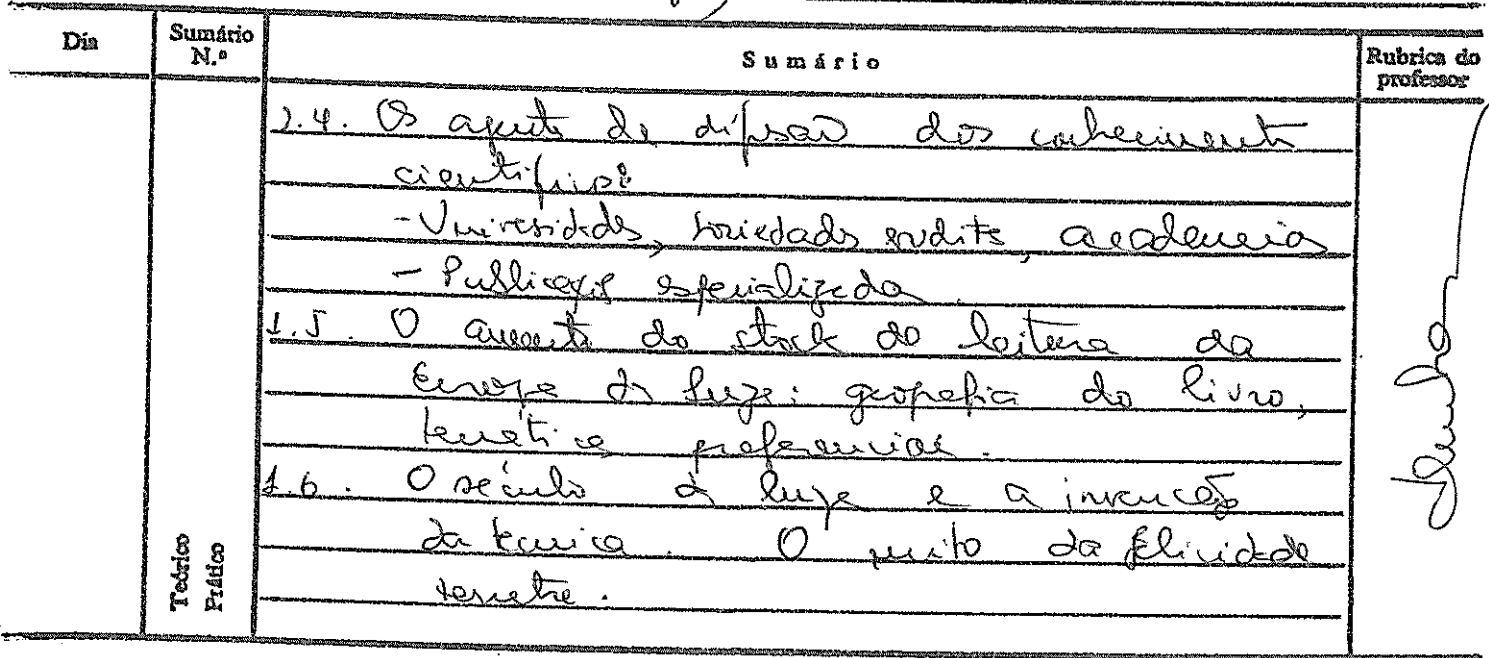 Dia
Sumário N.º
Sumário
Rubrica do professor
1.4. Os agentes de difusão dos conhecimentos
científicos:
- Universidades, sociedades eruditas, academias
- Publicações especializadas.
1.5. O aumento do stock de leitura da
Europa das luzes: geografia do livro,
temáticas preferenciais.
1.6. O século das luzes e a invenção
da técnica. O mito da felicidade
terrestre.
Teórico
Prático